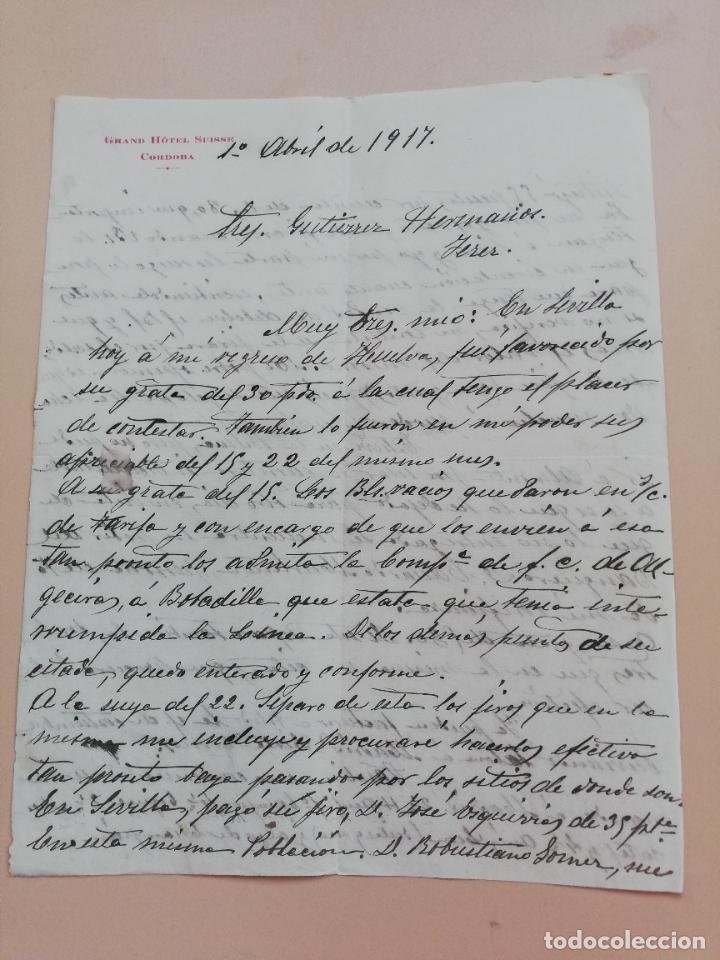 GRAND HÔTEL SUISSE
CORDOBA
1º Abríl de 1917.
Sres. Gutiérrez Hermanos.
Jerez.
Muy Sres. mio: En Sevilla
hoy á mi regreso de Huelva, fuí favorecido por
su grata del 30 pdo. á la cual tengo el placer
de contestar. También lo fueron en mi poder sus
apreciable del 15 y 22 del mismo mes.
A su grata del 15. Los Bls. vacios que daron en f/c.
de Tarifa y con encargo de que los envíen á esa
tan pronto los admita la Compª de f. c. de Al-
geciras, á Bobadilla que estate que tenia inte-
rrumpida la Loinea. De los demás puntos de su
citada, quedo enterado y conforme.
A la suya del 22. Separo de esta los jiros que en la
misma me incluye y procuraré hacerlos efectivo
tan pronto baya pasando por los sitios de donde son.
En Sevilla, pagó su jiro, D. José Esquivias de 35 ptas
En esta misma Población. D. Robustiano Gomez, me
todocoleccion.net